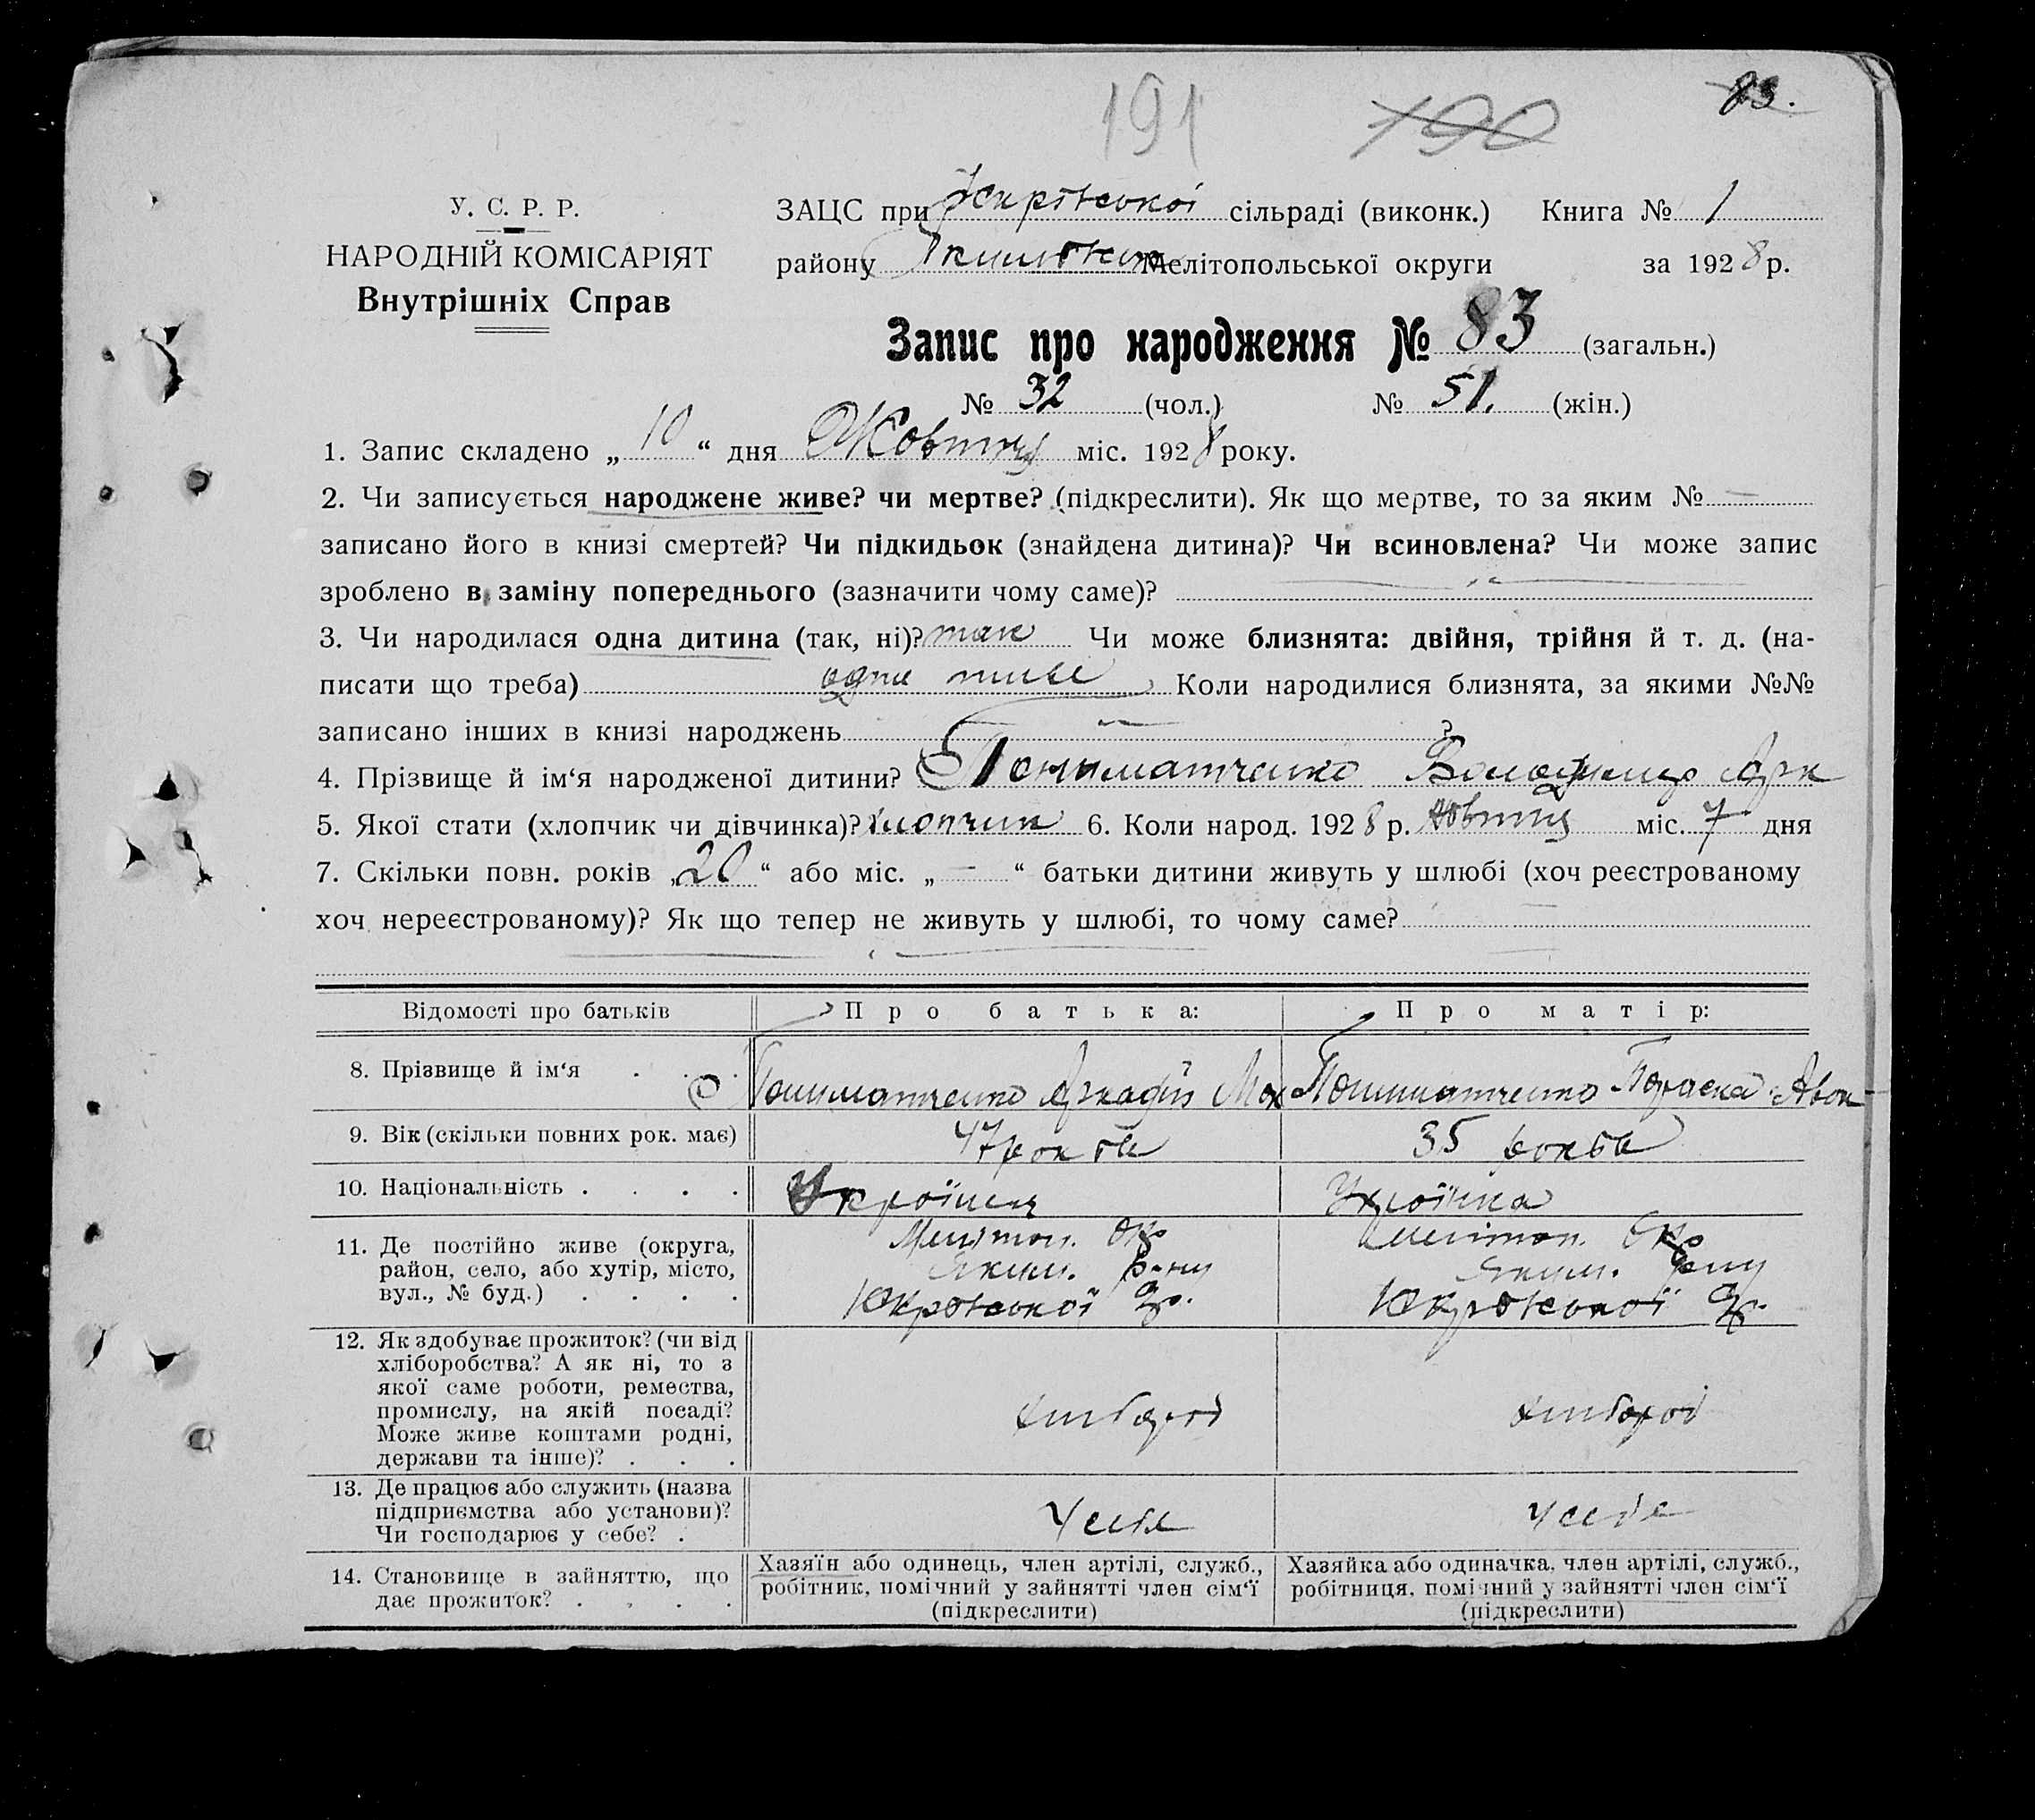 83.
191 190
У. С. Р. Р.
НАРОДНІЙ КОМІСАРІЯТ
Внутрішніх Справ
ЗАЦС при сільраді (виконк.) Книга № 1
району Мелітопольської округи за 1928 р.
Запис про народження № 83 (загальн.)
№ 32 (чол.) № 51. (жін.)
1. Запис складено „ 10 “ дня Жовтня міс. 1928 року.
2. Чи записується народжене живе? чи мертве? (підкреслити). Як що мертве, то за яким № —
записано його в книзі смертей? Чи підкидьок (знайдена дитина)? Чи всиновлена? Чи може запис
зроблено в заміну попереднього (зазначити чому саме)?
3. Чи народилася одна дитина (так, ні)? так Чи може близнята: двійня, трійня й т. д. (на-
писати що треба) одна Коли народилися близнята, за якими №№
записано інших в книзі народжень ?
4. Прізвище й ім‘я народженої дитини? Арк
5. Якої стати (хлопчик чи дівчинка)? хлопчик 6. Коли народ. 1928 р. жовтня міс. 7 дня
7. Скільки повн. років „ 20 “ або міс. „ — “ батьки дитини живуть у шлюбі (хоч реєстрованому
хоч нереєстрованому)? Як що тепер не живуть у шлюбі, то чому саме?
Відомості про батьків Про батька: Про матір:
8. Прізвище й ім‘я Аркадій
9. Вік (скільки повних рок. має) 47 років 35 років
10. Національність Українец Українка
11. Де постійно живе (округа, Мелітоп. Окр Мелітоп. Окр
район, село, або хутір, місто, Яким. р-ну Яким. р-ну
вул., № буд.)
12. Як здобуває прожиток? (чи від
хліборобства? А як ні, то з
якої саме роботи, ремества,
промислу, на якій посаді?
Може живе коштами родні,
держави та інше)?
13. Де працює або служить (назва
підприємства або установи)? У себе У себе
Чи господарює у себе?
14. Становище в зайняттю, що
дає прожиток?
Хазяїн або одинець, член артілі, служб.,
робітник, помічний у зайнятті член сім‘ї
(підкреслити)
Хазяйка або одиначка, член артілі, служб.,
робітниця, помічний у зайнятті член сім‘ї
(підкреслити)